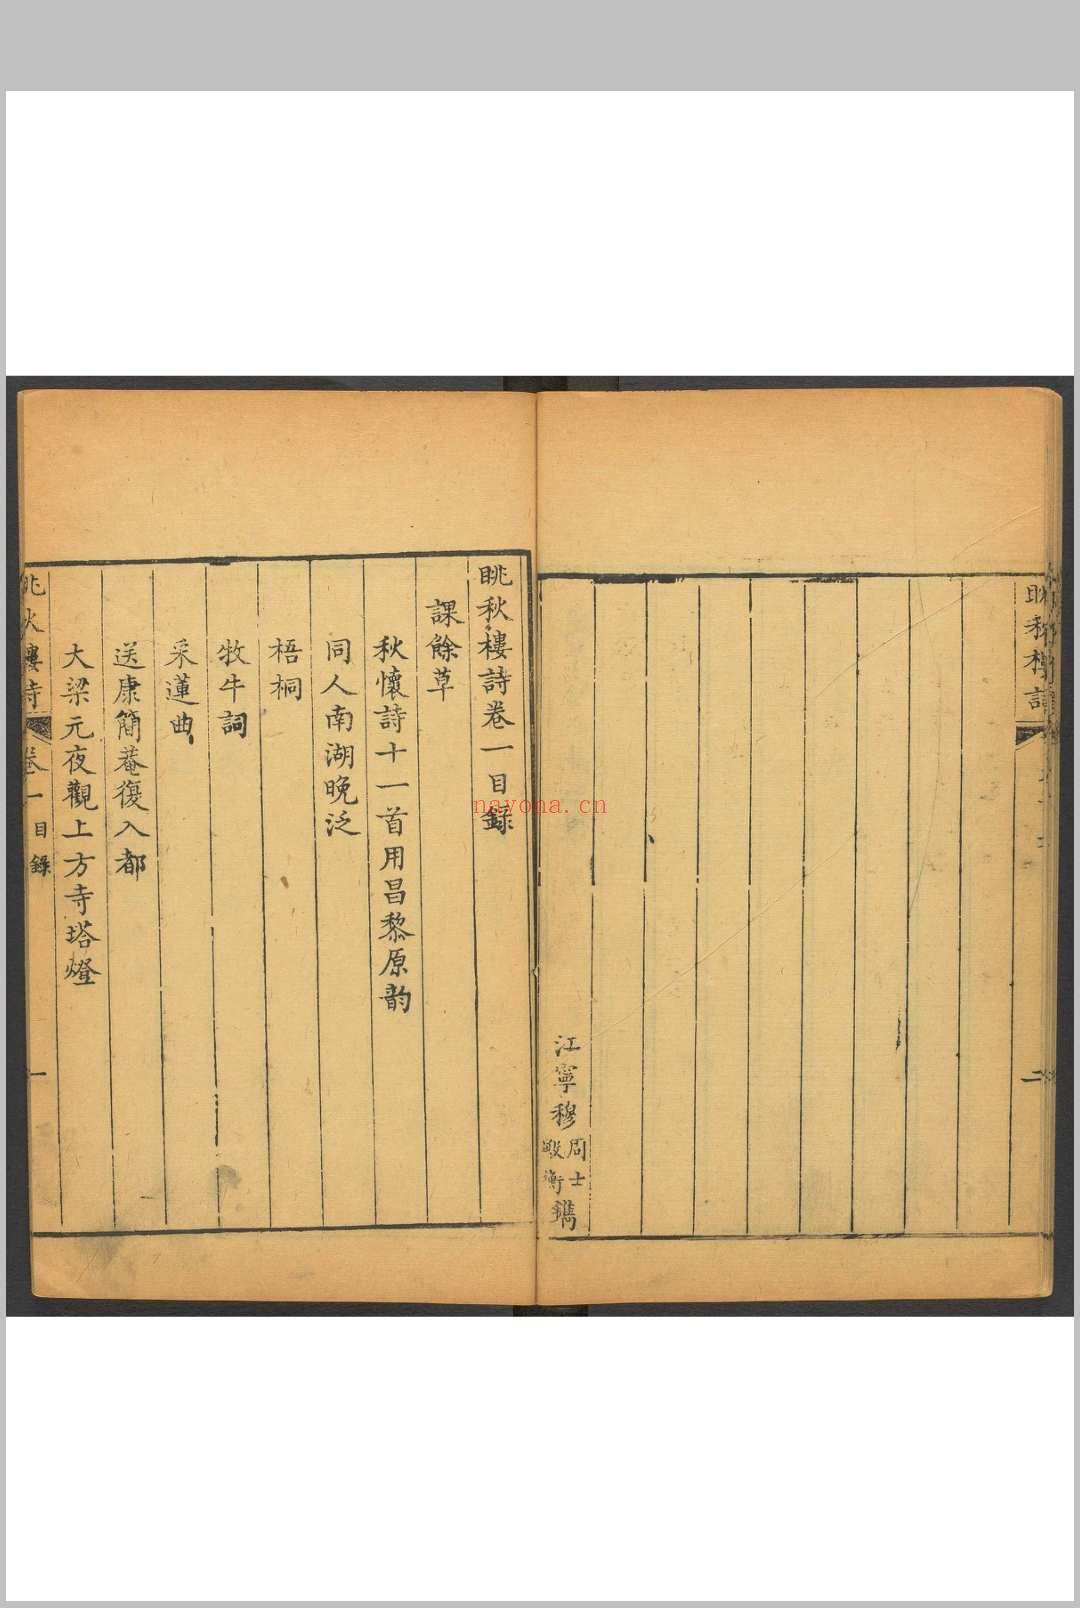 眺秋樓詩
二
江寧穆
周士
殹衡
鐫
眺秋樓詩卷一目錄
課餘草
秋懷詩十一首用昌黎原韵
同人南湖晚泛
梧桐
牧牛詞
采蓮曲
送康簡菴復入都
大梁元夜觀上方寺塔燈
眺秋樓詩
卷一目錄
一
nayona.cn